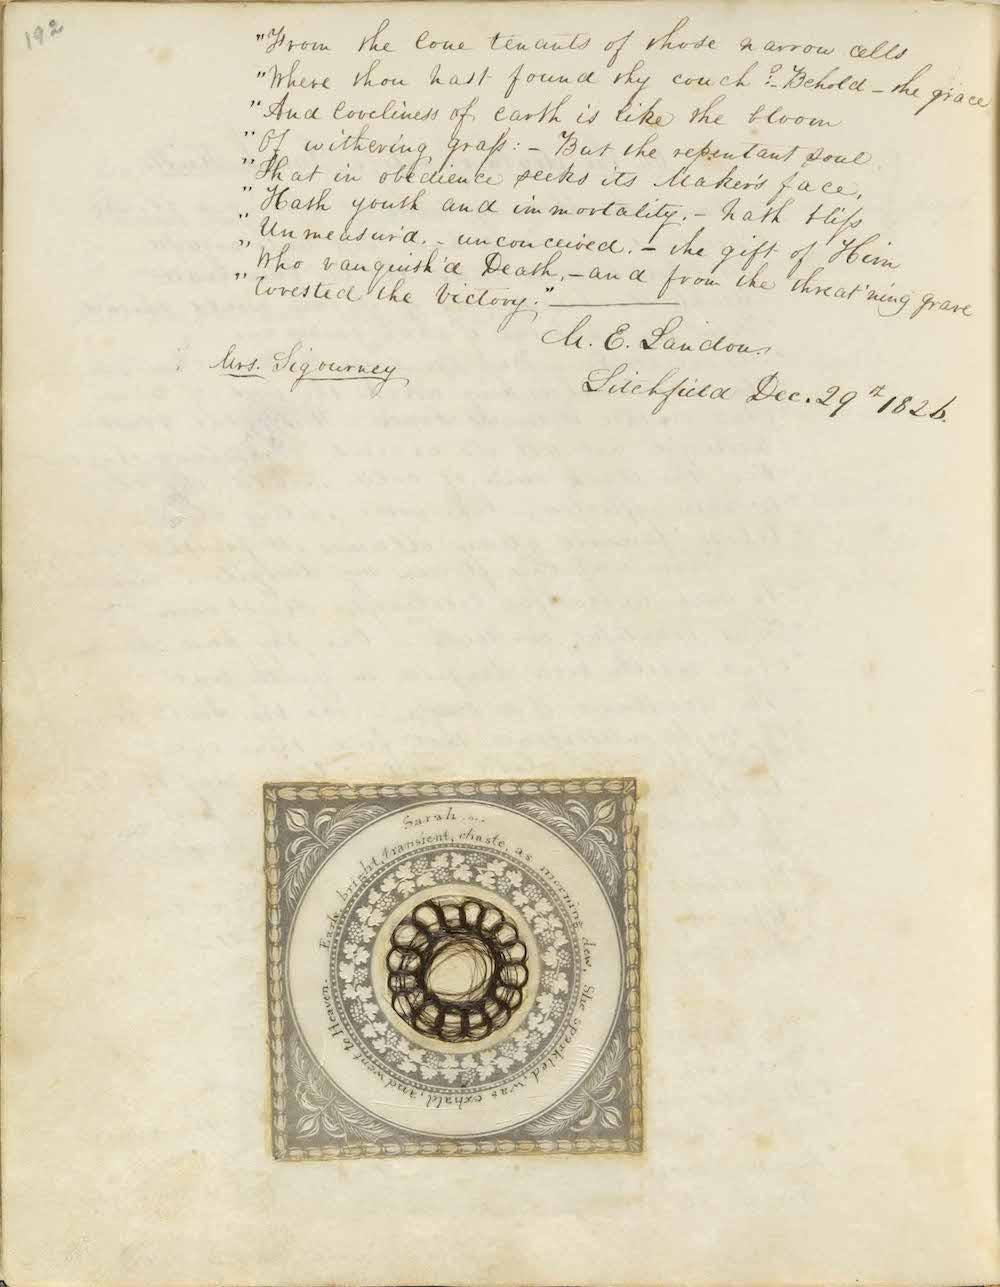 192
"From the lone tenants of those narrow cells
"Where thou hast found thy couch?—Behold—the grace
"And loveliness of earth is like the bloom
"Of withering grass:—But the repentant soul
"That in obedience seeks its Maker's face,
"Hath youth and immortality.—hath bliss
"Unmeasur'd.—unconceived.—the gift of Him
"Who vanquish'd Death,—and from the threat'ning grave
"Wrested the Victory."
M. E. Landon.
Mrs. Sigourney
Litchfield Dec. 29th 1826.
Sarah
Early, bright, transient, chaste, as morning dew, She sparkled, was exhald, and went to Heaven.